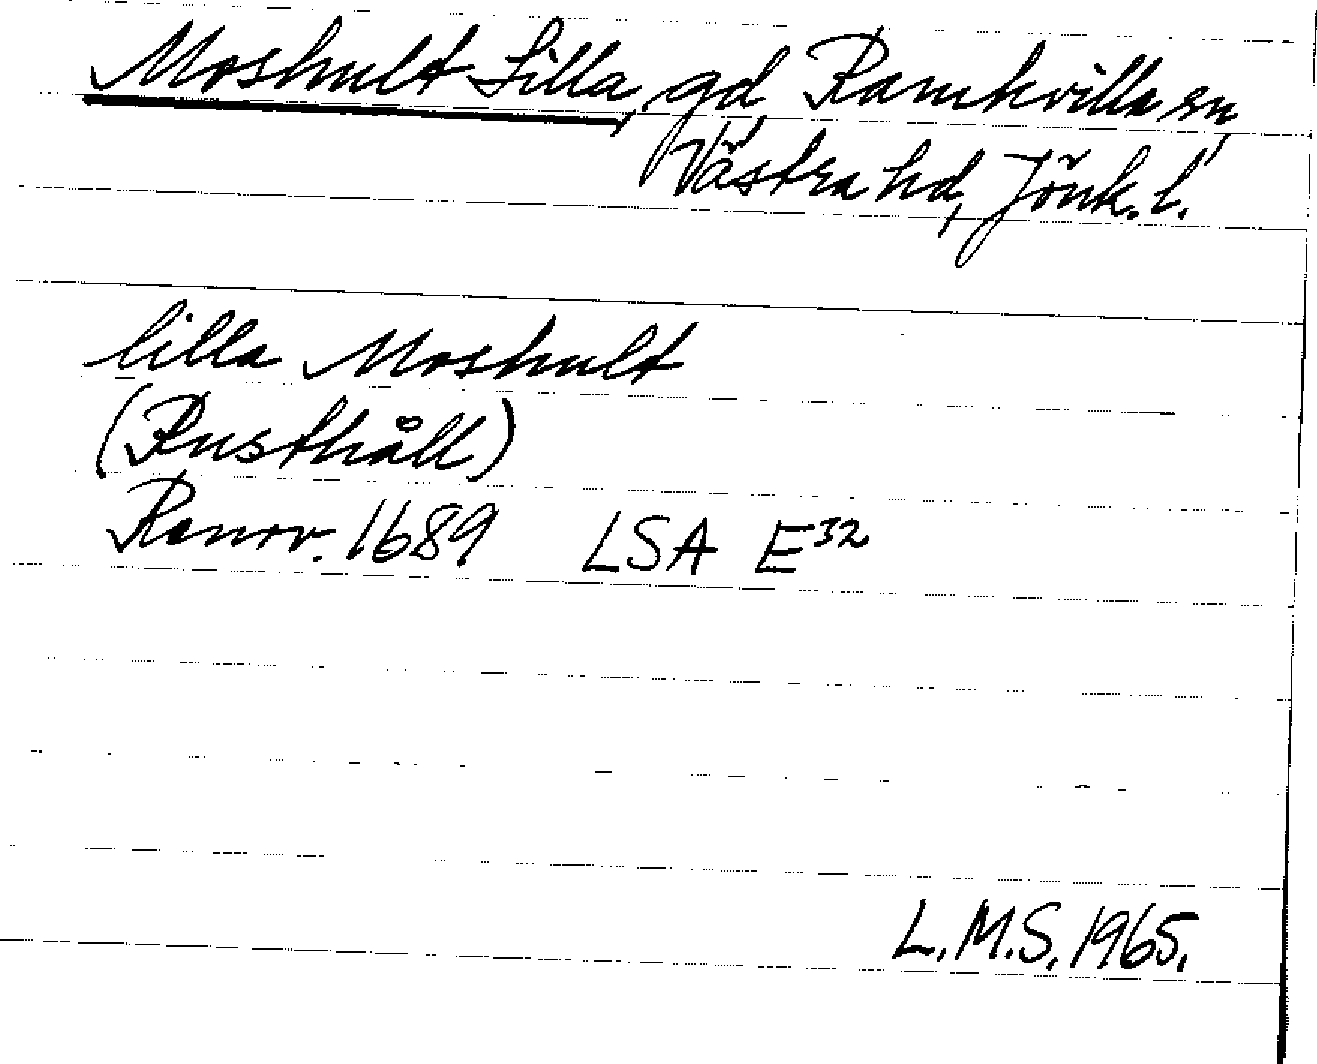 Moshult Lilla, gd, Ramkvilla sn,
Västra hd, Jönk. l.
lilla Moshult
(Rusthåll)
Renov. 1689 LSA E32
L.M.S. 1965.